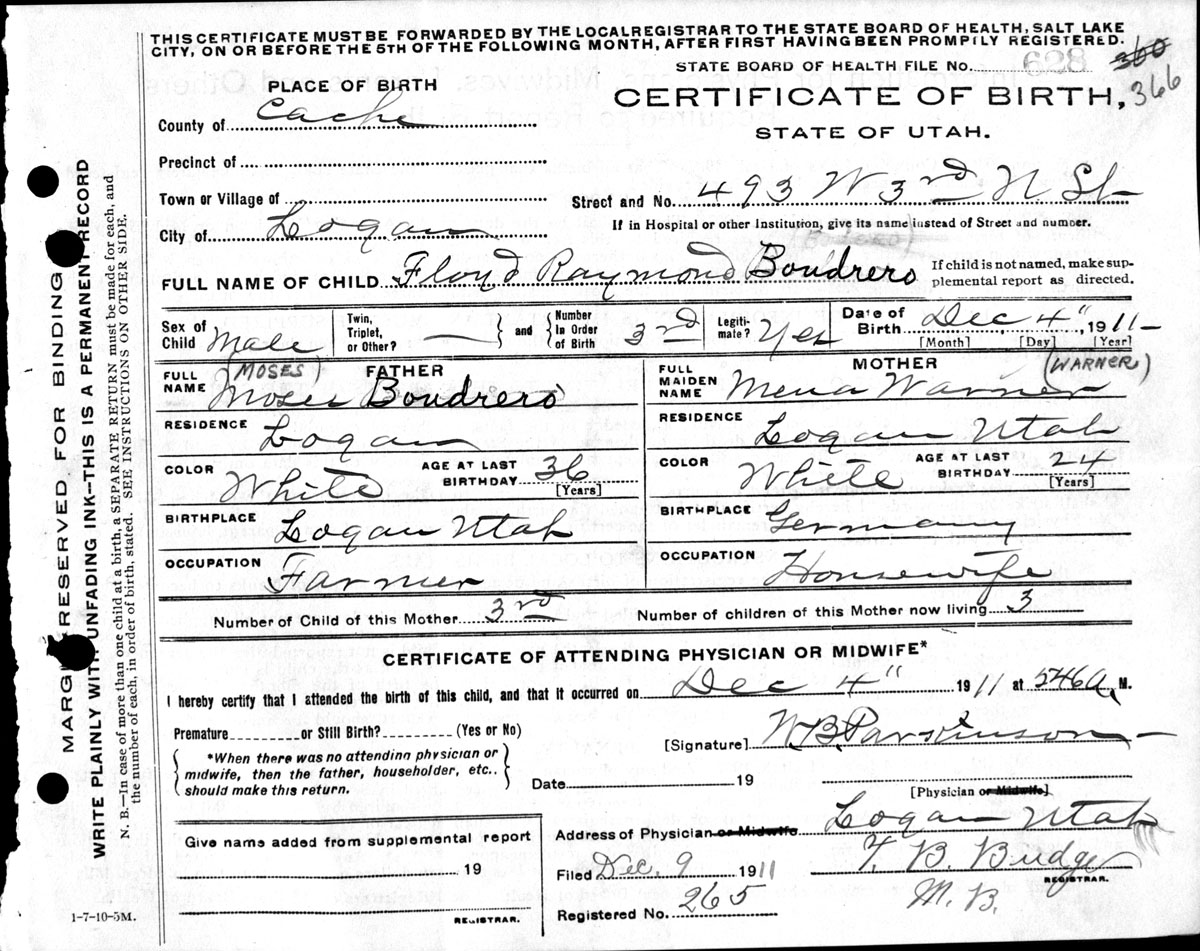 THIS CERTIFICATE MUST BE FORWARDED BY THE LOCAL REGISTRAR TO THE STATE BOARD OF HEALTH, SALT LAKE
CITY, ON OR BEFORE THE 5TH OF THE FOLLOWING MONTH, AFTER FIRST HAVING BEEN PROMPTLY REGISTERED.
STATE BOARD OF HEALTH FILE No. 628 360
366
PLACE OF BIRTH
CERTIFICATE OF BIRTH,
STATE OF UTAH.
County of Cache
Precinct of
Town or Village of
Street and No. 493 W 3rd N. St
If in Hospital or other Institution, give its name instead of Street and number.
City of Logan
FULL NAME OF CHILD Floyd Raymond Boudrero
If child is not named, make sup-
plemental report as directed.
Sex of Child Male
Twin, Triplet, or Other? — and Number In Order of Birth 3rd
Legiti-mate? Yes
Date of Birth Dec 4" 1911
[Month] [Day] [Year]
FATHER
FULL NAME Moses Boudrero
(MOSES)
RESIDENCE Logan
COLOR White
AGE AT LAST BIRTHDAY 36
[Years]
BIRTHPLACE Logan Utah
OCCUPATION Farmer
MOTHER
FULL MAIDEN NAME Mena Warner
(WARNER)
RESIDENCE Logan Utah
COLOR White
AGE AT LAST BIRTHDAY 24
[Years]
BIRTHPLACE Germany
OCCUPATION Housewife
Number of Child of this Mother 3rd
Number of children of this Mother now living 3
CERTIFICATE OF ATTENDING PHYSICIAN OR MIDWIFE*
I hereby certify that I attended the birth of this child, and that it occurred on Dec 4" 1911 at 546 A. M.
Premature or Still Birth? (Yes or No)
[Signature] W.B. Parkinson
*When there was no attending physician or
midwife, then the father, householder, etc.,
should make this return.
Date 19
[Physician or Midwife]
Address of Physician or Midwife Logan Utah
Give name added from supplemental report
19
REGISTRAR.
Filed Dec. 9 1911
T. B. Budge
REGISTRAR.
M. D.
Registered No. 265
1-7-10-5M.
MARGIN RESERVED FOR BINDING
WRITE PLAINLY WITH UNFADING INK—THIS IS A PERMANENT RECORD
N. B.—In case of more than one child at a birth, a SEPARATE RETURN must be made for each, and
the number of each, in order of birth, stated. SEE INSTRUCTIONS ON OTHER SIDE.